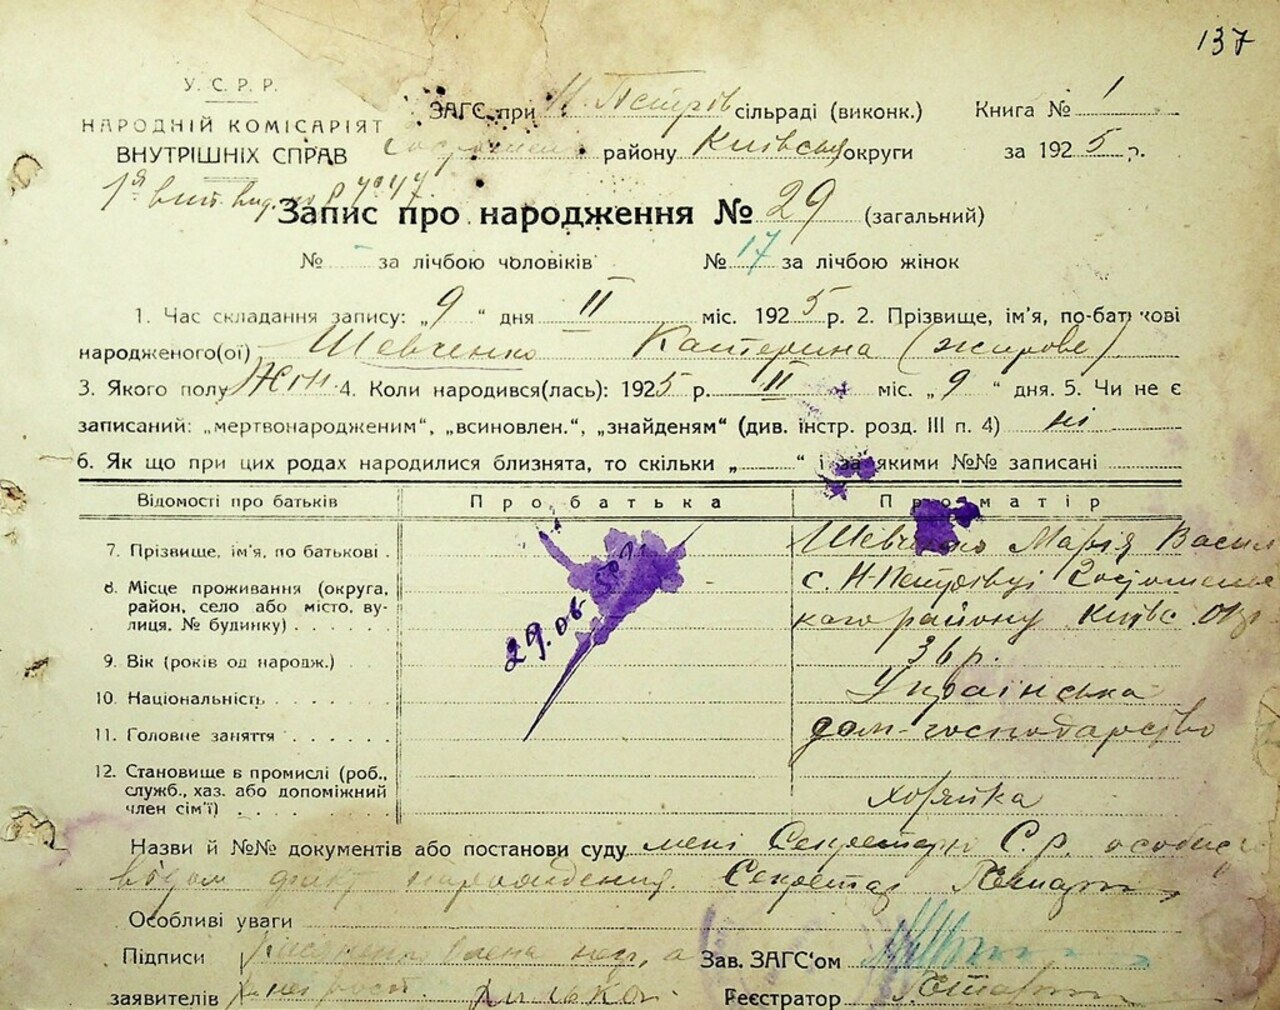 137
У. С. Р. Р.
НАРОДНІЙ КОМІСАРІЯТ
ВНУТРІШНІХ СПРАВ
ЗАГС при Н. Петрів сільраді (виконк.) Книга № 1
району Київської округи за 1925 р.
Запис про народження № 29 (загальний)
№ - за лічбою чоловіків № 17 за лічбою жінок
1. Час складання запису: „9“ дня II міс. 1925 р. 2. Прізвище, ім'я, по-батькові
народженого(ої) Шевченко Катерина (
3. Якого полу Жін 4. Коли народився(лась): 1925 р. II міс. „9“ дня. 5. Чи не є
записаний: „мертвонародженим“, „всиновлен.“, „знайденям“ (див. інстр. розд. III п. 4) ні
6. Як що при цих родах народилися близнята, то скільки „ “ і за якими №№ записані
Відомості про батьків Про батька Про матір
7. Прізвище, ім'я, по батькові . Шевченко Марія Васил
8. Місце проживання (округа, район, село або місто, вулиця, № будинку) с. Н-Петрівці
району Київс. Окр
29.06
9. Вік (років од народж.) 36 р.
10. Національність Українська
11. Головне заняття дом-господарство
12. Становище в промислі (роб., служб., хаз. або допоміжний член сім'ї) Хозяйка
Назви й №№ документів або постанови суду мені Секретарю С.р. особисто
відом факт народження. Секретар
Особливі уваги
Підписи Зав. ЗАГС'ом
заявителів Реєстратор